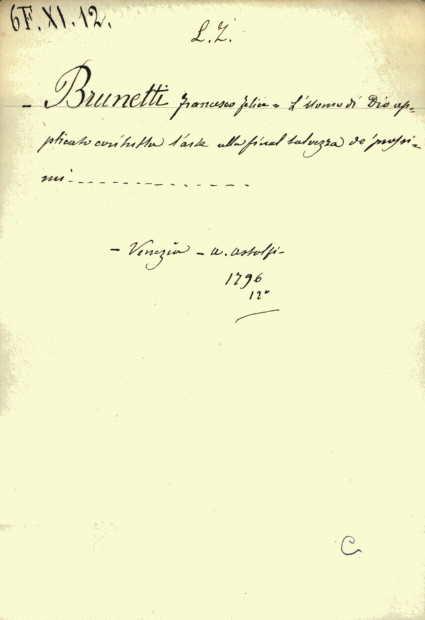 6F.XI.12.
L.Z.
- Brunetti Francesco Felice = L'Uomo di Dio ap=
plicato con tutta l'arte alla final salvezza de' prossi=
mi
- Venezia - a. Astolfi -
1796
12°
C